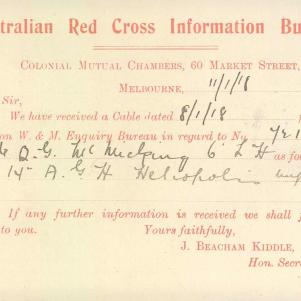 tralian Red Cross Information Bu
COLONIAL MUTUAL CHAMBERS, 60 MARKET STREET,
MELBOURNE, 11/1/18
Sir,
We have received a Cable dated 8/1/18
on W. & M. Enquiry Bureau in regard to No
6 L H as fo
14th A G H Heliopolis
If any further information is received we shall f
to you. Yours faithfully,
J. BEACHAM KIDDLE,
Hon. Secre